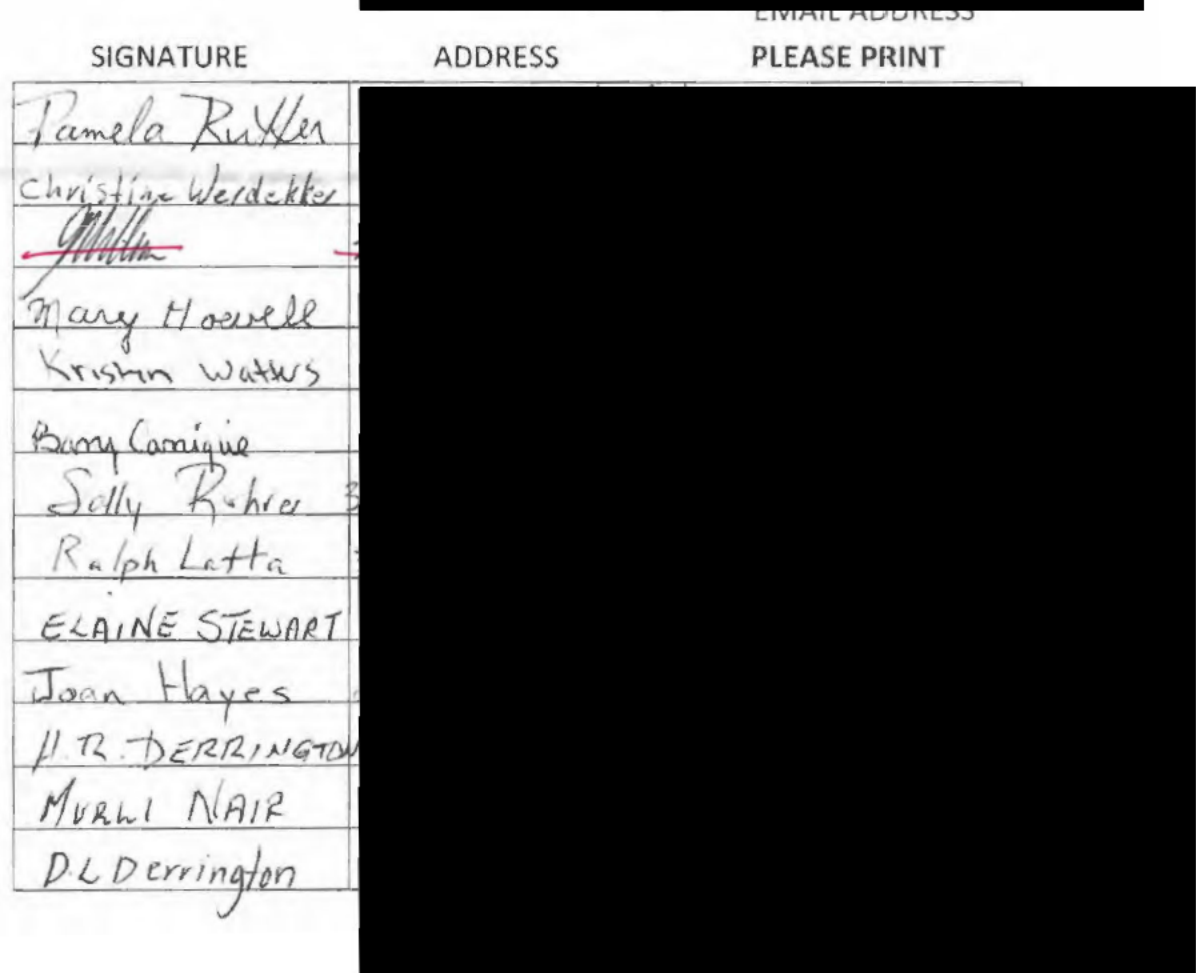 EMAIL ADDRESS
SIGNATURE ADDRESS PLEASE PRINT
Pamela Rutter
Christine Werdekker
Mary Howell
Kristin Watters
Barry Camique
Sally Rohrer 3
Ralph Latta
ELAINE STEWART
Joan Hayes
H.R. DERRINGTON
MURLI NAIR
D.L Derrington